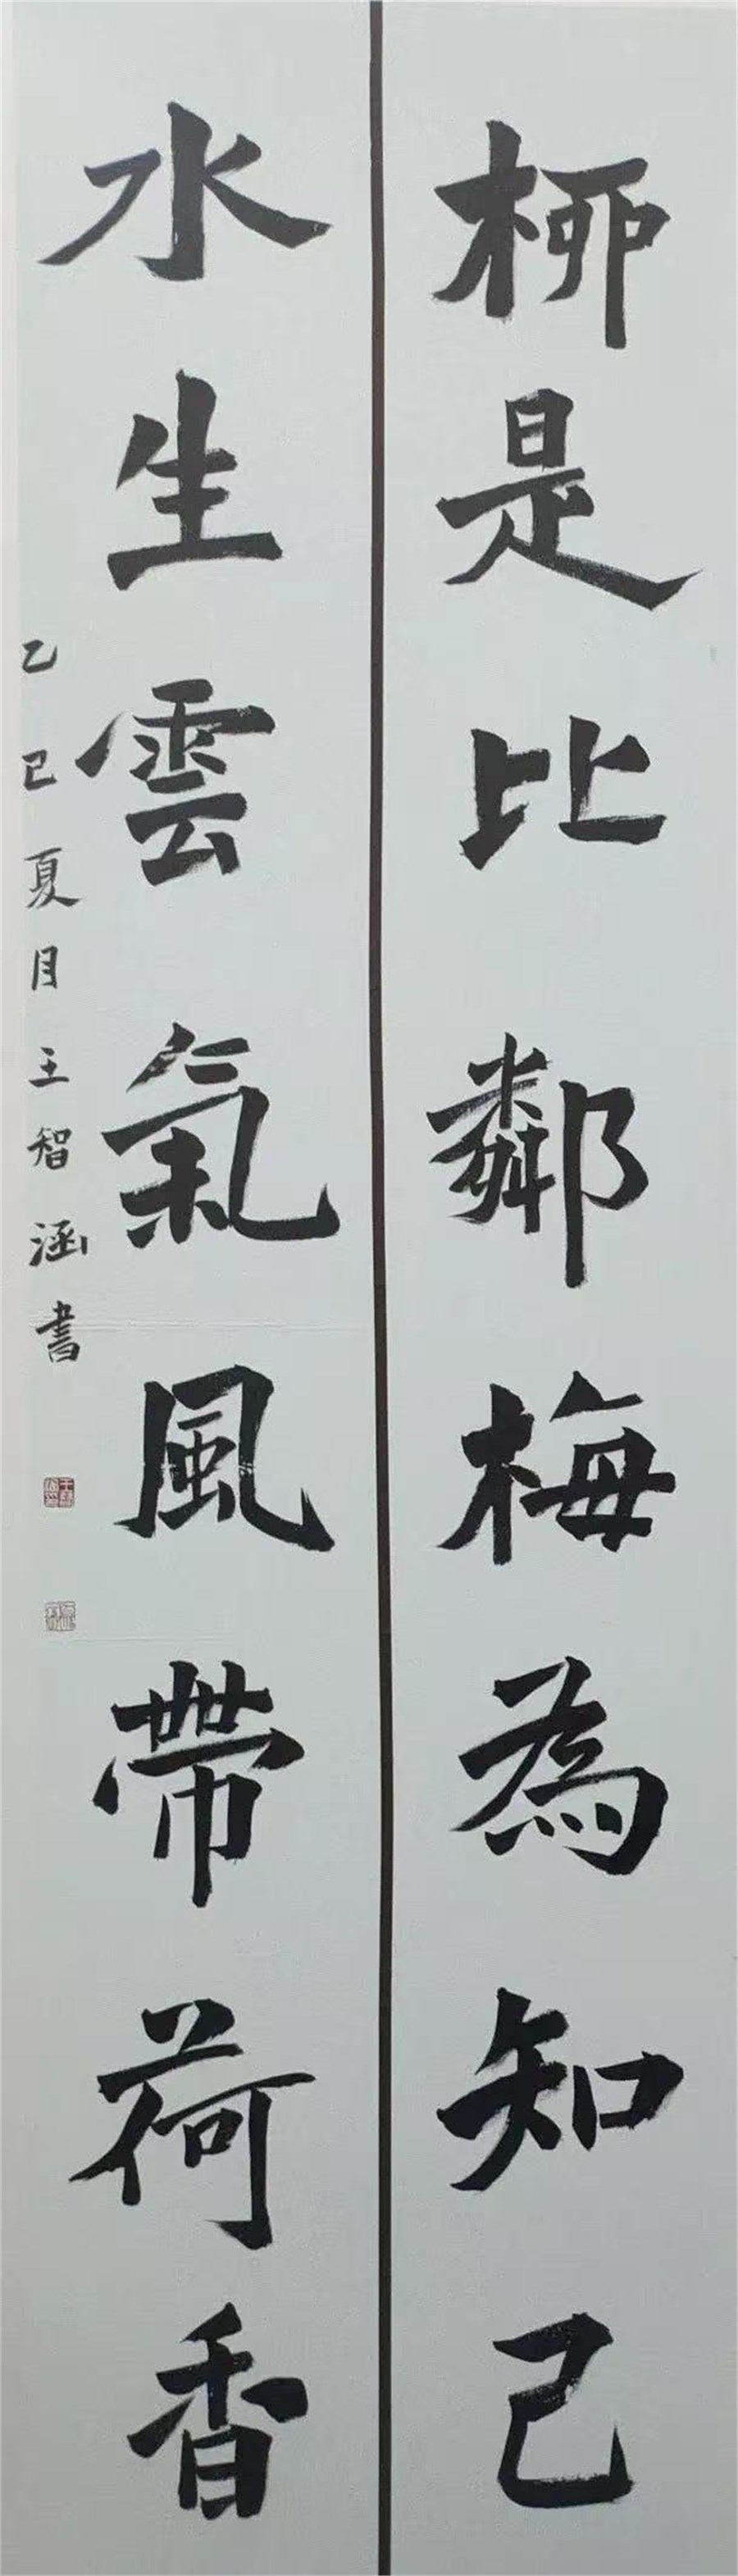 柳是比鄰梅為知己
水生雲氣風帶荷香
乙巳夏月王智涵書